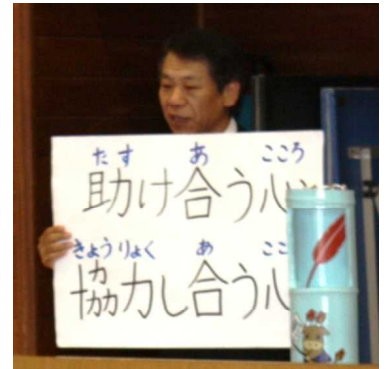 たす あ こころ
助け合う心
きょうりょく あ ここ
協力し合う心